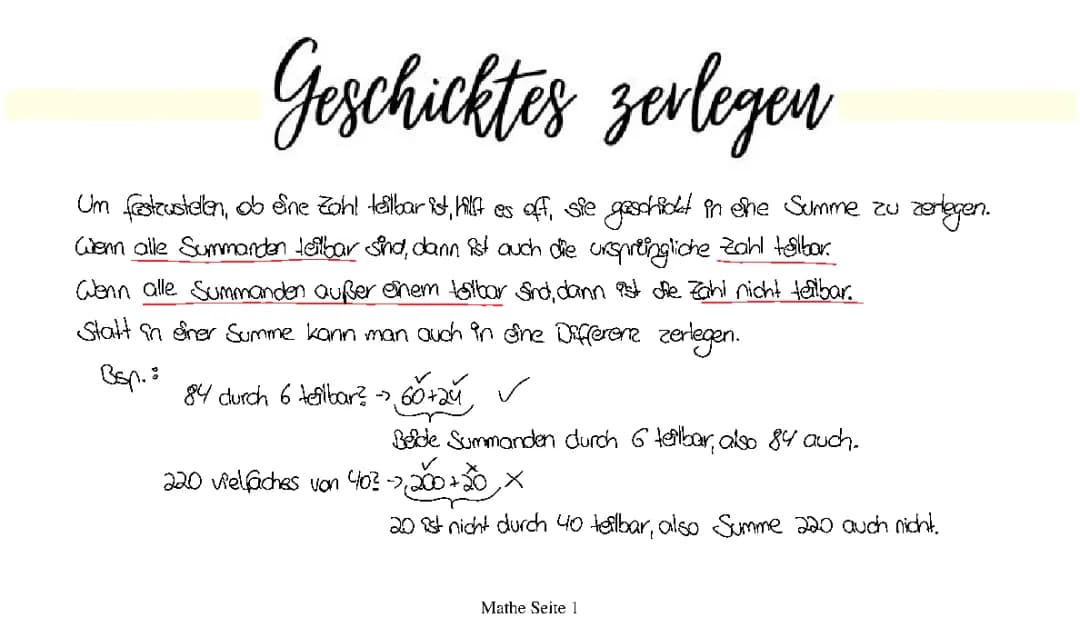 Geschicktes zerlegen
Um festzustellen, ob eine Zahl teilbar ist, hilft es oft, sie geschickt in eine Summe zu zerlegen.
Wenn alle Summanden teilbar sind, dann ist auch die ursprüngliche Zahl teilbar.
Wenn alle Summanden außer einem teilbar sind, dann ist die Zahl nicht teilbar.
Statt in einer Summe kann man auch in eine Differenz zerlegen.
Bsp.:
84 durch 6 teilbar? → 60+24 ✓
Beide Summanden durch 6 teilbar, also 84 auch.
220 vielfaches von 40? → 200+20 ×
20 ist nicht durch 40 teilbar, also Summe 220 auch nicht.
Mathe Seite 1